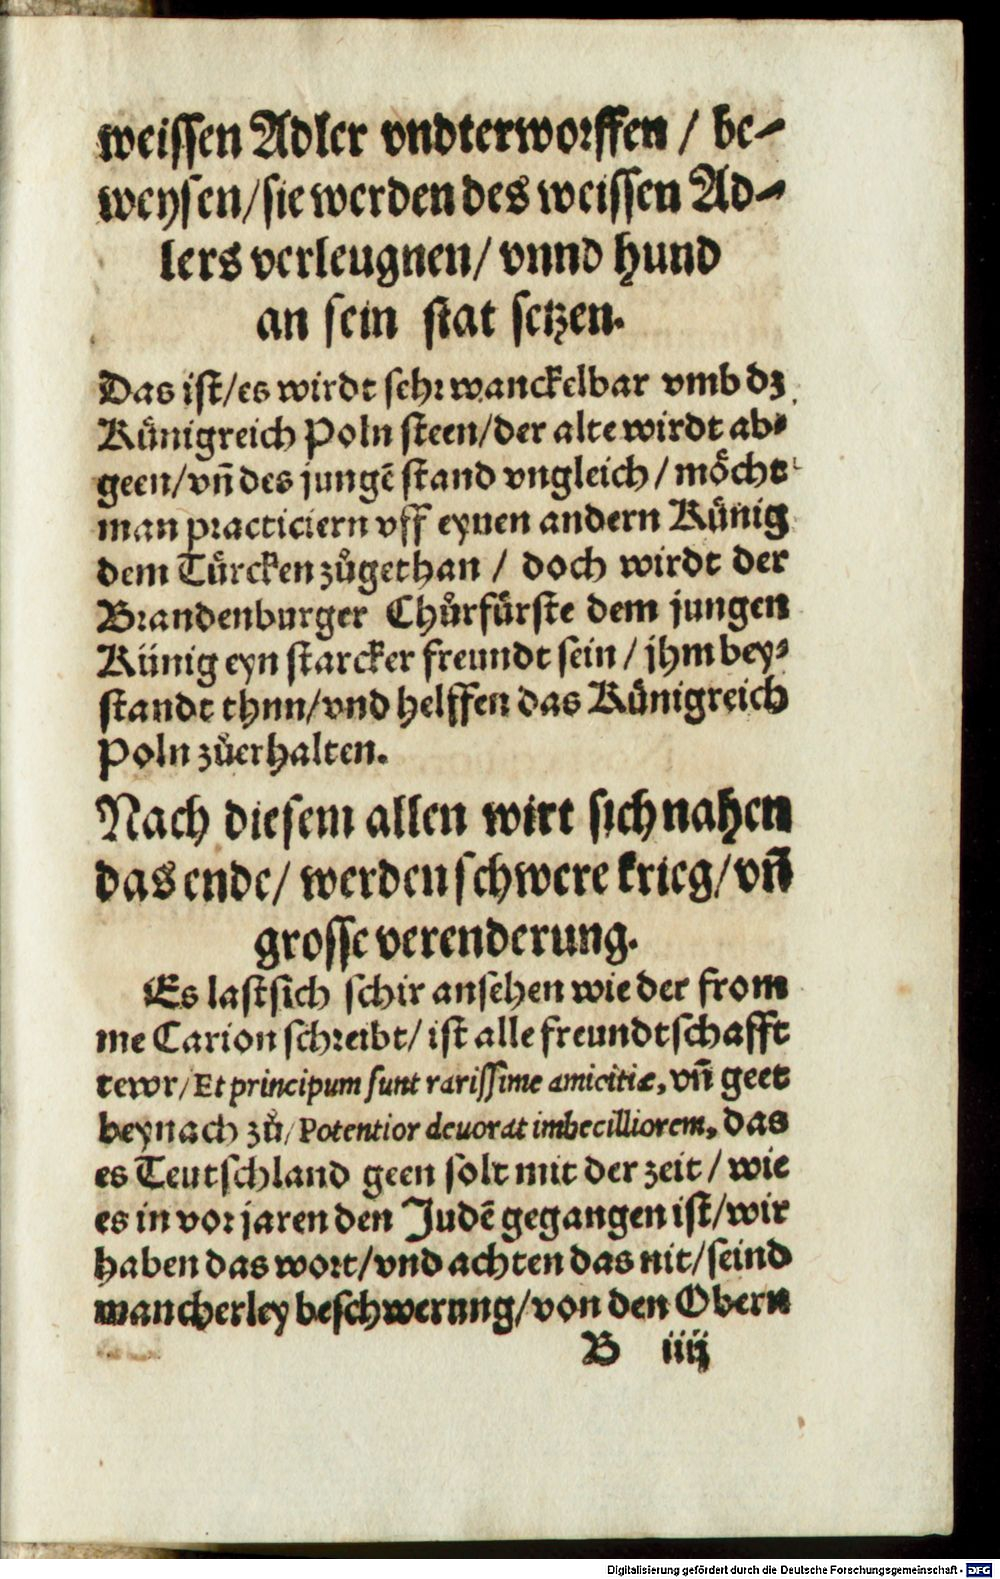 weissen Adler vndterworffen / be-
weysen/sie werden des weissen Ad-
lers verleugnen/ vnnd hund
an sein stat setzen.
Das ist/es wirdt sehr wanckelbar vmb dz
Künigreich Poln steen/der alte wirdt ab-
geen/vñ des jungē stand vngleich/ möcht
man practiciern vff eynen andern Künig
dem Türcken zůgethan / doch wirdt der
Brandenburger Chůrfürste dem jungen
Künig eyn starcker freundt sein / jhm bey-
standt thun/vnd helffen das Künigreich
Poln zůerhalten.
Nach diesem allen wirt sich nahen
das ende/ werden schwere krieg/ vñ
grosse verenderung.
Es last sich schir ansehen wie der from
me Carion schreibt/ ist alle freundtschafft
tewr/ Et principum sunt rarissime amicitiæ, vñ geet
beynach zů/ Potentior deuorat imbecilliorem, das
es Teutschland geen solt mit der zeit / wie
es in vor jaren den Judē gegangen ist/wir
haben das wort/vnd achten das nit/seind
mancherley beschwerung/von den Obern
B iiij
Digitalisierung gefördert durch die Deutsche Forschungsgemeinschaft - DFG